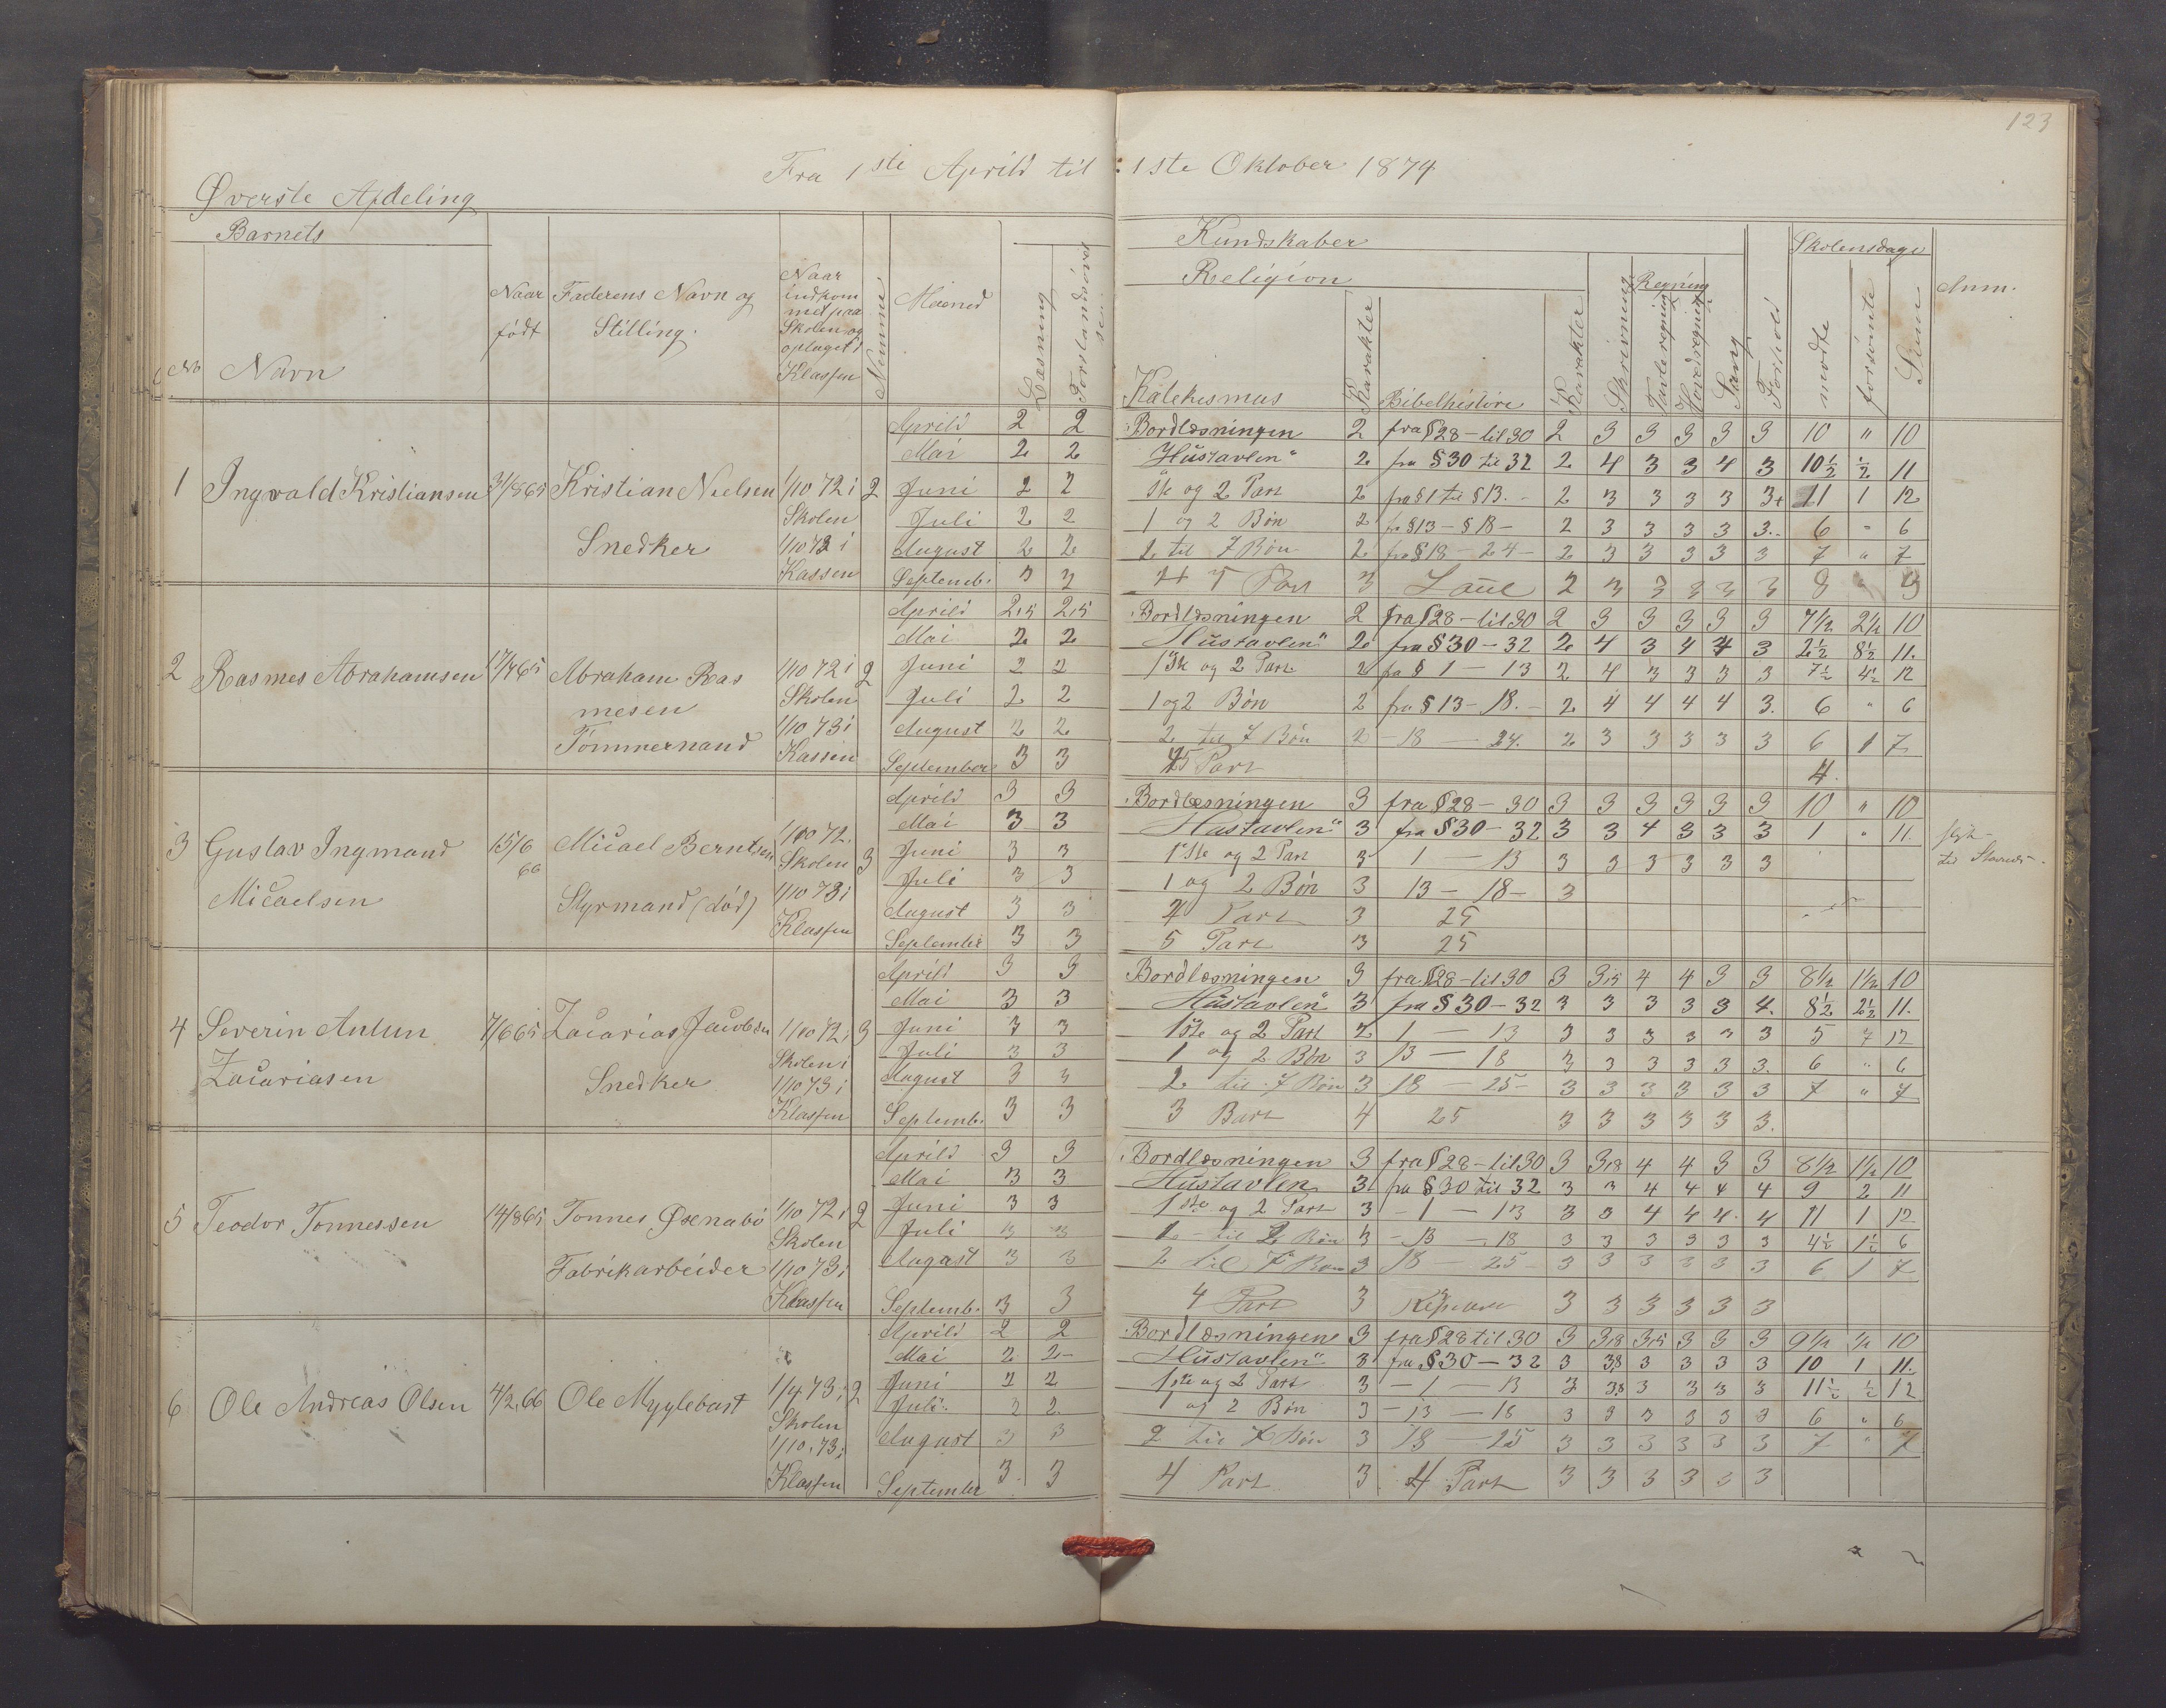 123
Fra 1ste Aprild til 1ste Oktober 1874
Øverste Afdeling
Barnets
No Navn
Naar født
Faderens Navn og Stilling
Naar indkommet paa Skolen og optaget i Klassen
Nemme
Maaned
Læsning
Forstandsøvelse
Kundskaber
Religion
Katekesmus
Karakter
Bibelhistire
Karakter
Skrivning
Regning
Tavleregning
Hovedregning
Sang
Forhold
Skolensdage
mødte
forsømte
Sum
Anm.
1 Ingvald Kristiansen Kristian Nielsen 1/10 72 i 2
Snedker
Skolen
1/10 73 i
Kassen
Aprild 2 2 Bordlæsningen 2 fra § 28 – til 30 2 3 3 3 3 3 10 " 10
Mai 2 2 Hustavlen" 2 fra § 30 til 32 2 4 3 3 4 3 10½ ½ 11
Juni 2 2 1ste og 2 Part 2 fra § 1 til § 13. 2 3 3 3 3 3+ 11 1 12
Juli 2 2 1 og 2 Bøn 2 fra § 13 – § 18 – 2 3 3 3 3 3. 6 " 6
August 2 2 2 til 7 Bøn 2 fra § 18 – 24 – 2 3 3 3 3 3 7 " 7
Septemb. 3 3 4 5 Part 3 2 3 3 3 3 3 8
2 Rasmes Abrahamsen 17/4 65 Abraham Rasmesen 1/10 72 i 2
Tømmermand
Skolen
1/10 73 i
Kassen
Aprild 2,5 2,5 Bordlæsningen 2 fra § 28 – til 30 2 3 3 3 3 3 7½ 2½ 10
Mai 2 2 Hustavlen" 2 fra § 30 – 32 2 4 3 4 4 3 2½ 8½ 11.
Juni 2 2 1ste og 2 Part 2 fra § 1 – 13 2 4 3 3 3 3 7½ 4½ 12
Juli 2 2 1 og 2 Bøn 2 fra § 13 – 18. – 2 4 4 4 4 3. 6 " 6
August 2 2 2 til 7 Bøn 2 – 18 – 24. 2 3 3 3 3 3 6 1 7
September 3 3 45 Part 4.
3 Gustav Ingmand 15/6 66 Micael Berntsen 1/10 72. 3
Micaelsen Styrmand (død)
Skolen
1/10 73 i
Klassen
Aprild 3 3 Bordlæsningen 3 fra § 28 – 30 3 3 3 3 3 3 10 " 10
Mai 3 3 Hustavlen" 3 fra § 30 – 32 3 3 4 3 3 3 1 " 11.
Juni 3 3 1ste og 2 Part 3 1 – 13 3 3 3 3 3 3
Juli 3 3 1 og 2 Bøn 3 13 – 18 – 3
August 3 3 4 Part 3 25
September 3 3 5 Part 3 25
4 Severin Antun 7/6 65 Zacarias Jacobsen 1/10 72 i 3
Zacariasen Snedker
Skolen i
1/10 73 i
Klassen
Aprild 3 3 Bordlæsningen 3 fra § 28 – til 30 3 3,5 4 4 3 3 8½ 1½ 10
Mai 3 3 Hustavlen" 3 fra § 30 – 32 3 3 3 3 3 4. 8½ 2½ 11.
Juni 3 3 1ste og 2 Part 2 1 – 13 3 3 3 3 3 3 5 7 12
Juli 3 3 1 og 2 Bøn 3 13 – 18 3 3 3 3 3 3. 6 " 6
August 3 3 2 til 7 Bøn 3 18 – 25 – 3 3 3 3 3 3 7 " 7
Septemb. 3 3 3 Bart 4 25 3 3 3 3 3 3.
5 Teodor Tonnessen 14/8 65 Tonnes Øxnabø 1/10 72 i 2
Fabrikarbeider
Skolen
1/10 73 i
Klassen
Aprild 3 3 Bordlæsningen 3 fra § 28 – til 30 3 3,8 4 4 3 3 8½ 1½ 10
Mai 3 3 Hustavlen 3. fra § 30 til 32 3 3 4 4 4 4 9 2 11
Juni 3 3 1ste og 2 Part 3 – 1 – 13 3 3 4 4 4. 4 11 1 12
Juli 3 3 1 – til 2 Bøn 3 – 13 – 18 3 3 3 3 3 3 4½ 1½ 6
August 3 3 2 til 7 Bøn 3 18 – 25 – 3 3 3 3 3 3 6 1 7
Septemb. 3 3 4 Part 3 3 3 3 3 3 3
6 Ole Andreas Olsen 4/2 66 Ole Myglebust 1/4 73 i 2
Skolen
1/10 73 i
Klassen
Aprild 2 2 Bordlæsningen 3 fra § 28 til 30 3 3,8 3,5 3 3 3 9½ ½ 10
Mai 2 2 – Hustavlen" 3 fra § 30 – 32 3 3,8 3 3 3 3 10 1 11.
Juni 2 2 1ste og 2 Part 3 – 1 – 13 3 3,8 3 3 3 3 11½ ½ 12
Juli 2 2 1 og 2 Bøn 3 – 13 – 18 3 3 3 3 3 3 6 " 6
August 3 3 2 til 7 Bøn 3 18 – 25 3 3 3 3 3 3 7 " 7
September 3 3 4 Part 3 4 Part 3 3 3 3 3 3